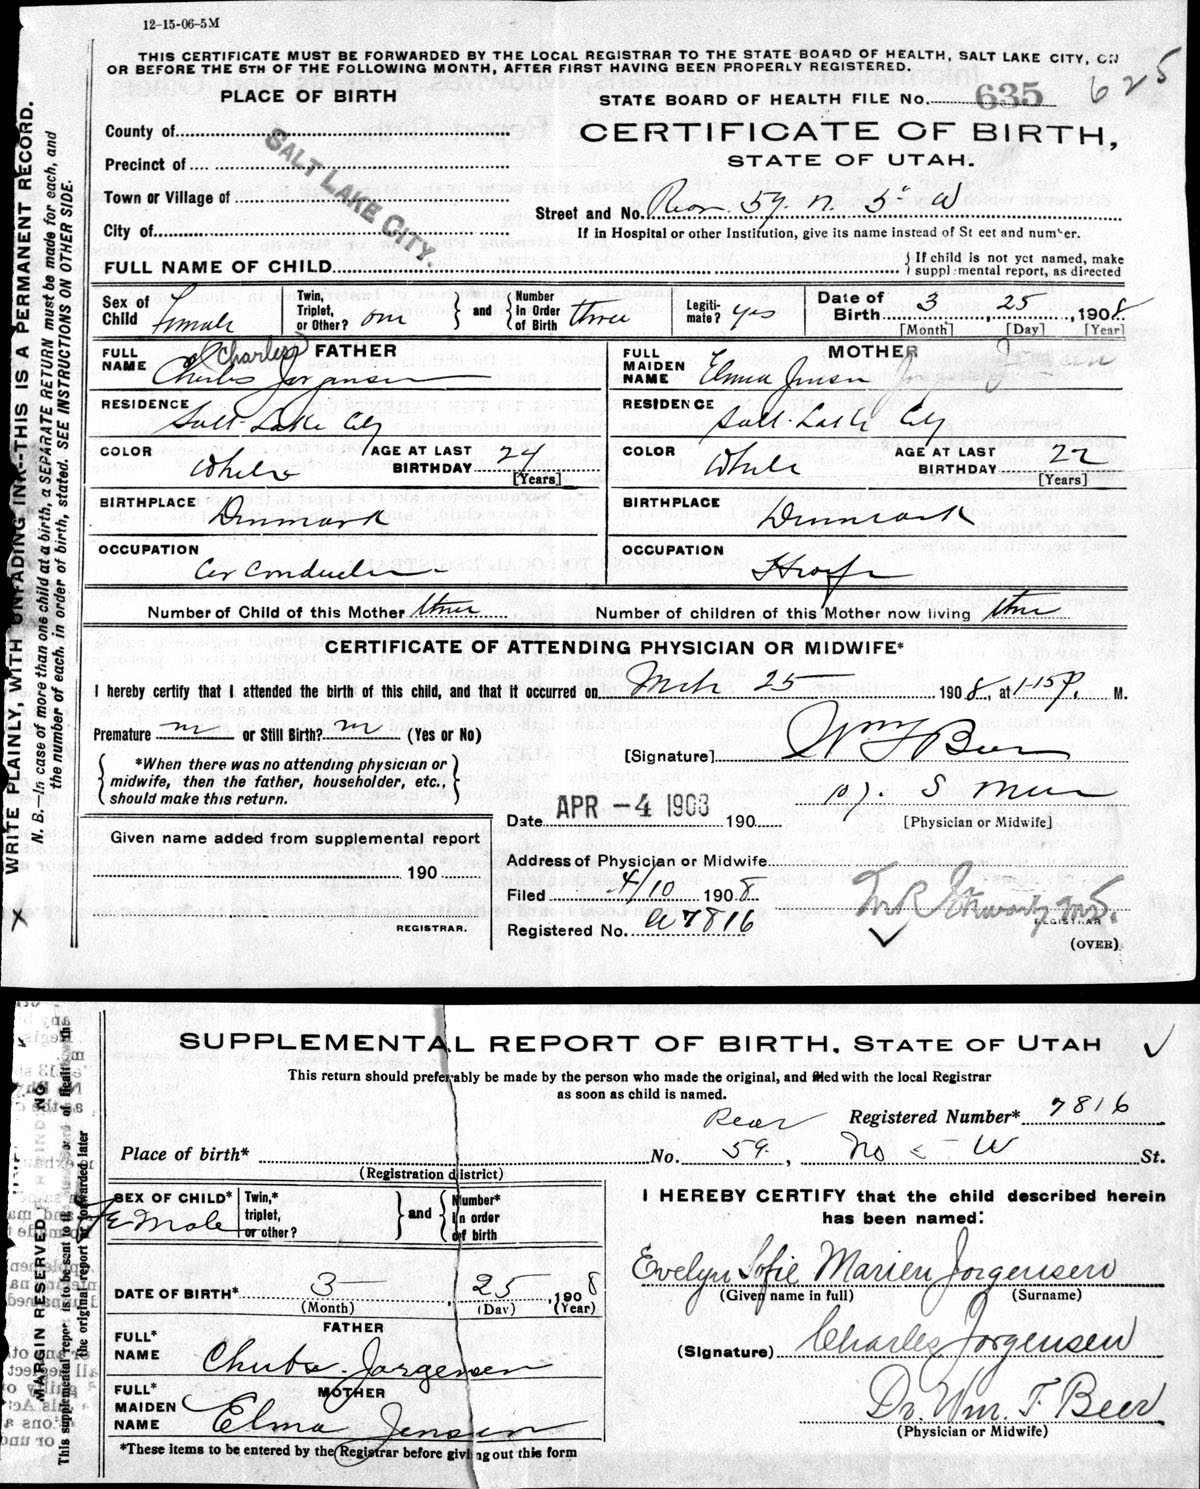 12-15-06-5M
THIS CERTIFICATE MUST BE FORWARDED BY THE LOCAL REGISTRAR TO THE STATE BOARD OF HEALTH, SALT LAKE CITY, ON
OR BEFORE THE 5TH OF THE FOLLOWING MONTH, AFTER FIRST HAVING BEEN PROPERLY REGISTERED.
WRITE PLAINLY, WITH UNFADING INK--THIS IS A PERMANENT RECORD.
N. B.—In case of more than one child at a birth, a SEPARATE RETURN must be made for each, and
the number of each, in order of birth, stated. SEE INSTRUCTIONS ON OTHER SIDE.
PLACE OF BIRTH
County of
Precinct of
Town or Village of
City of
SALT LAKE CITY.
STATE BOARD OF HEALTH FILE No. 635 625
CERTIFICATE OF BIRTH,
STATE OF UTAH.
Street and No. Rear 59. n. 5" W
If in Hospital or other Institution, give its name instead of St eet and number.
FULL NAME OF CHILD
If child is not yet named, make
supplemental report, as directed
Sex of Child Female
Twin, Triplet, or Other? one
and
Number In Order of Birth three
Legiti-mate? yes
Date of Birth 3 25, 1908.
[Month] [Day] [Year]
FATHER
FULL NAME (Charles) Jorgensen
RESIDENCE Salt Lake City
COLOR White
AGE AT LAST BIRTHDAY 24
[Years]
BIRTHPLACE Denmark
OCCUPATION Car Conductor
MOTHER
FULL MAIDEN NAME Elma Jensen
RESIDENCE Salt Lake City
COLOR White
AGE AT LAST BIRTHDAY 22
[Years]
BIRTHPLACE Denmark
OCCUPATION
Number of Child of this Mother three
Number of children of this Mother now living three
CERTIFICATE OF ATTENDING PHYSICIAN OR MIDWIFE*
I hereby certify that I attended the birth of this child, and that it occurred on Mch 25 1908, at 1-15 P. M.
Premature no or Still Birth? no (Yes or No)
*When there was no attending physician or
midwife, then the father, householder, etc.,
should make this return.
[Signature] Wm F Beer
[Physician or Midwife]
Date APR -4 1908 190
Given name added from supplemental report
190
REGISTRAR.
Address of Physician or Midwife
Filed 4/10 1908
Registered No. a 7816
REGISTRAR
(OVER)
MARGIN RESERVED
This supplemental report is to be sent to the
the original report forwarded later
SUPPLEMENTAL REPORT OF BIRTH, STATE OF UTAH
This return should preferably be made by the person who made the original, and filed with the local Registrar
as soon as child is named.
Registered Number* 7816
Place of birth* Rear No. 59., No 5 W St.
(Registration district)
SEX OF CHILD* Female
Twin,* triplet, or other?
and
Number* in order of birth
DATE OF BIRTH* 3 25, 1908
(Month) (Day) (Year)
FATHER
FULL* NAME Jorgensen
MOTHER
FULL* MAIDEN NAME Elma Jensen
*These items to be entered by the Registrar before giving out this form
I HEREBY CERTIFY that the child described herein
has been named:
Evelyn Sofie Marien Jorgensen
(Given name in full) (Surname)
(Signature) Charles Jorgensen
Dr. Wm. F. Beer
(Physician or Midwife)